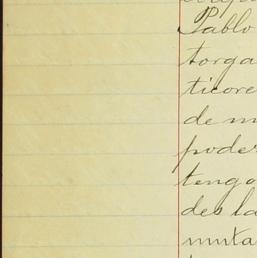 Pablo
torga
ticore
de m
poder
tengo
des la
muta